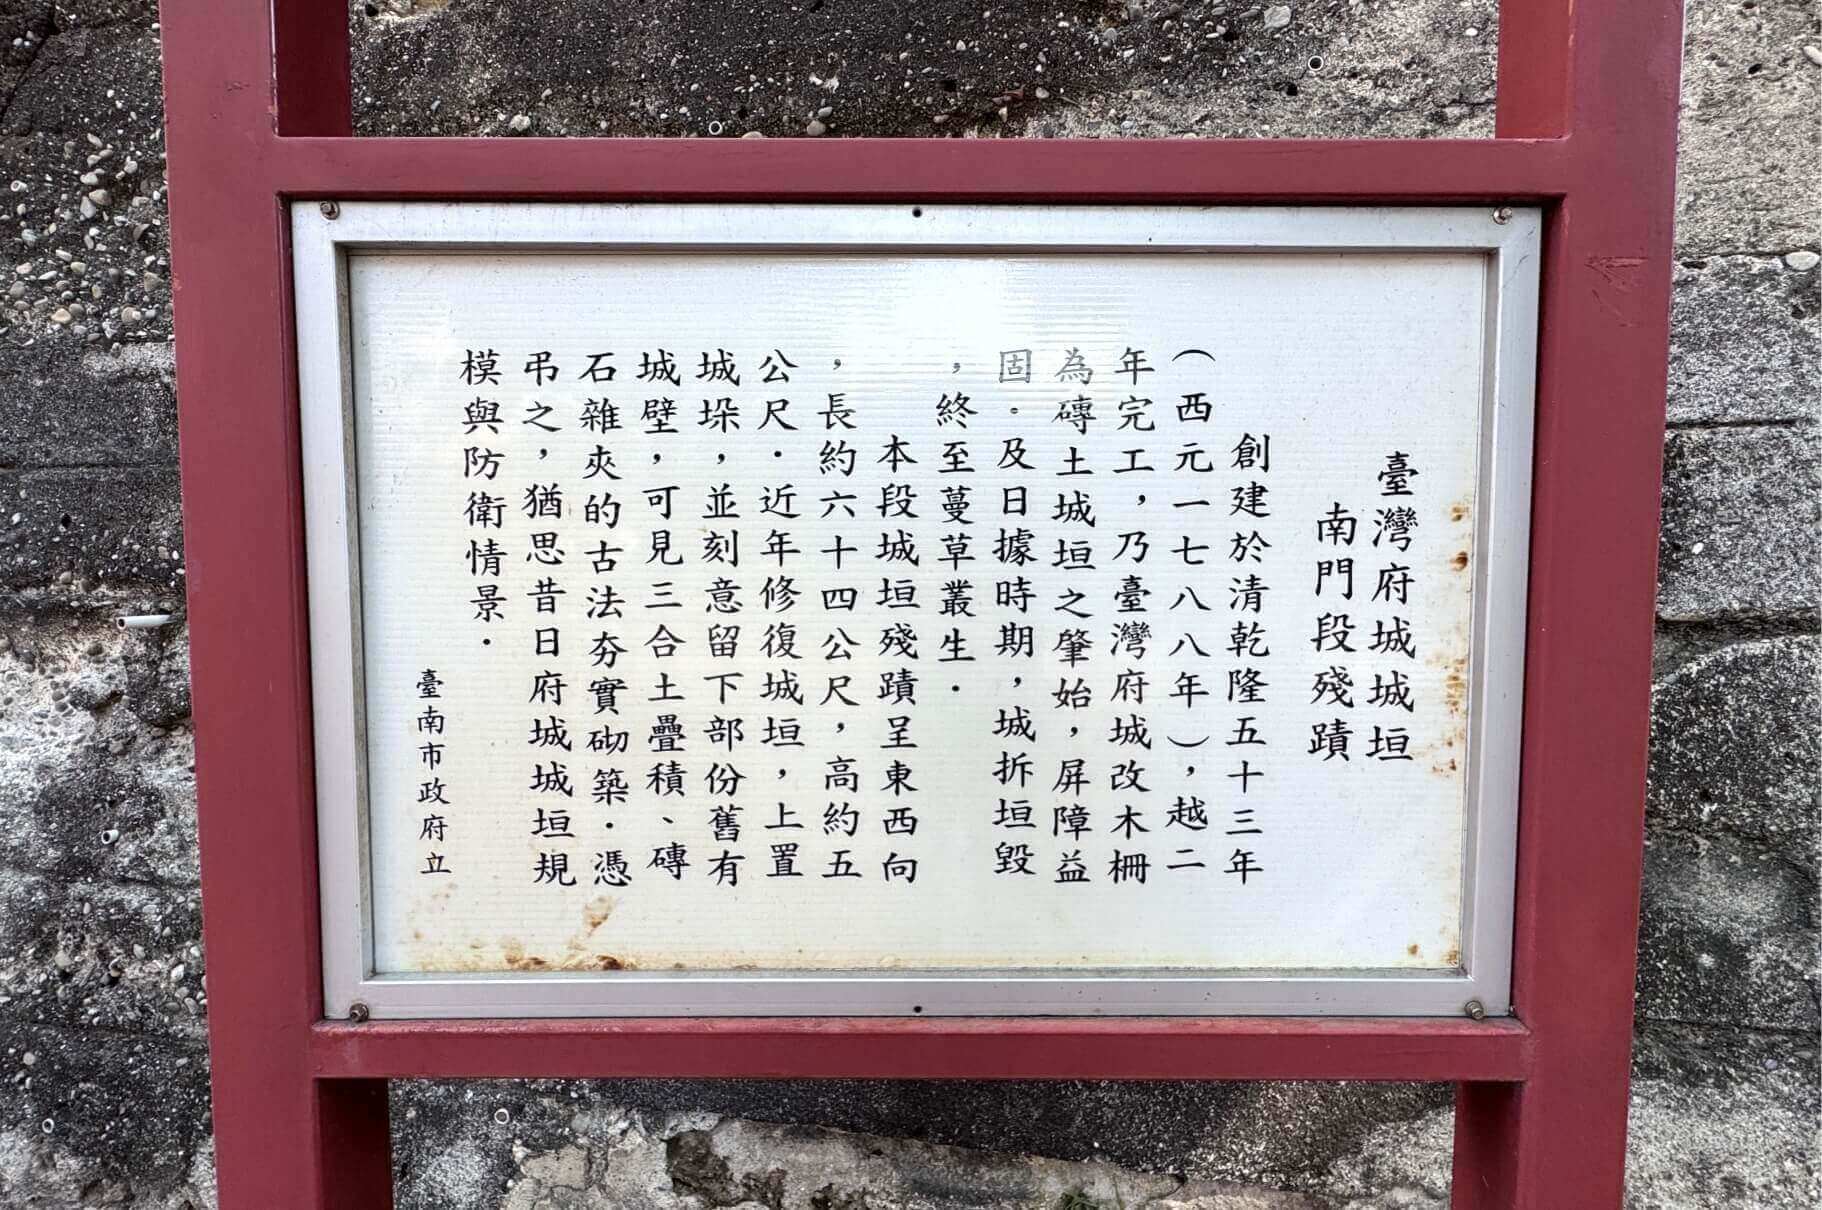 臺灣府城城垣
南門段殘蹟
創建於清乾隆五十三年
（西元一七八八年），越二
年完工，乃臺灣府城改木柵
為磚土城垣之肇始，屏障益
固。及日據時期，城拆垣毀
，終至蔓草叢生．
本段城垣殘蹟呈東西向
，長約六十四公尺，高約五
公尺．近年修復城垣，上置
城垛，並刻意留下部份舊有
城壁，可見三合土疊積、磚
石雜夾的古法夯實砌築．憑
弔之，猶思昔日府城城垣規
模與防衛情景．
臺南市政府立